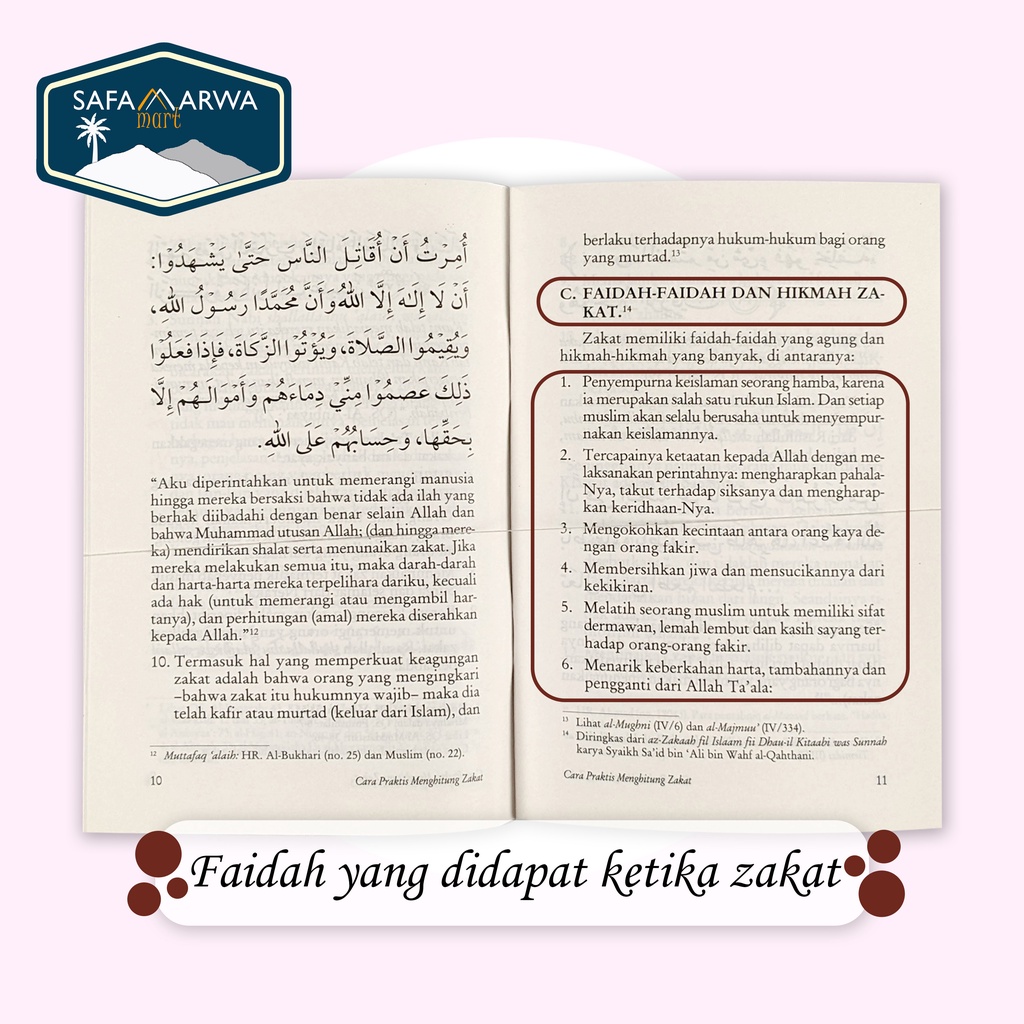 SAFA MARWA
mart
أُمِرْتُ أَنْ أُقَاتِلَ النَّاسَ حَتَّىٰ يَشْهَدُوْا:
أَنْ لَا إِلٰهَ إِلَّا اللهُ وَأَنَّ مُحَمَّدًا رَسُوْلُ اللهِ،
وَيُقِيْمُوا الصَّلَاةَ، وَيُؤْتُوا الزَّكَاةَ، فَإِذَا فَعَلُوْا
ذٰلِكَ عَصَمُوْا مِنِّيْ دِمَاءَهُمْ وَأَمْوَالَهُمْ إِلَّا
بِحَقِّهَا، وَحِسَابُهُمْ عَلَى اللهِ.
“Aku diperintahkan untuk memerangi manusia
hingga mereka bersaksi bahwa tidak ada ilah yang
berhak diibadahi dengan benar selain Allah dan
bahwa Muhammad utusan Allah; (dan hingga mere-
ka) mendirikan shalat serta menunaikan zakat. Jika
mereka melakukan semua itu, maka darah-darah
dan harta-harta mereka terpelihara dariku, kecuali
ada hak (untuk memerangi atau mengambil har-
tanya), dan perhitungan (amal) mereka diserahkan
kepada Allah.”¹²
10. Termasuk hal yang memperkuat keagungan
zakat adalah bahwa orang yang mengingkari
–bahwa zakat itu hukumnya wajib– maka dia
telah kafir atau murtad (keluar dari Islam), dan
¹² Muttafaq ‘alaih: HR. Al-Bukhari (no. 25) dan Muslim (no. 22).
10
Cara Praktis Menghitung Zakat
berlaku terhadapnya hukum-hukum bagi orang
yang murtad.¹³
C. FAIDAH-FAIDAH DAN HIKMAH ZA-
KAT.¹⁴
Zakat memiliki faidah-faidah yang agung dan
hikmah-hikmah yang banyak, di antaranya:
1. Penyempurna keislaman seorang hamba, karena
ia merupakan salah satu rukun Islam. Dan setiap
muslim akan selalu berusaha untuk menyempur-
nakan keislamannya.
2. Tercapainya ketaatan kepada Allah dengan me-
laksanakan perintahnya: mengharapkan pahala-
Nya, takut terhadap siksanya dan mengharap-
kan keridhaan-Nya.
3. Mengokohkan kecintaan antara orang kaya de-
ngan orang fakir.
4. Membersihkan jiwa dan mensucikannya dari
kekikiran.
5. Melatih seorang muslim untuk memiliki sifat
dermawan, lemah lembut dan kasih sayang ter-
hadap orang-orang fakir.
6. Menarik keberkahan harta, tambahannya dan
pengganti dari Allah Ta’ala:
¹³ Lihat al-Mughni (IV/6) dan al-Majmuu’ (IV/334).
¹⁴ Diringkas dari az-Zakaah fil Islaam fii Dhau-il Kitaabi was Sunnah
karya Syaikh Sa’id bin ‘Ali bin Wahf al-Qahthani.
Cara Praktis Menghitung Zakat
11
Faidah yang didapat ketika zakat